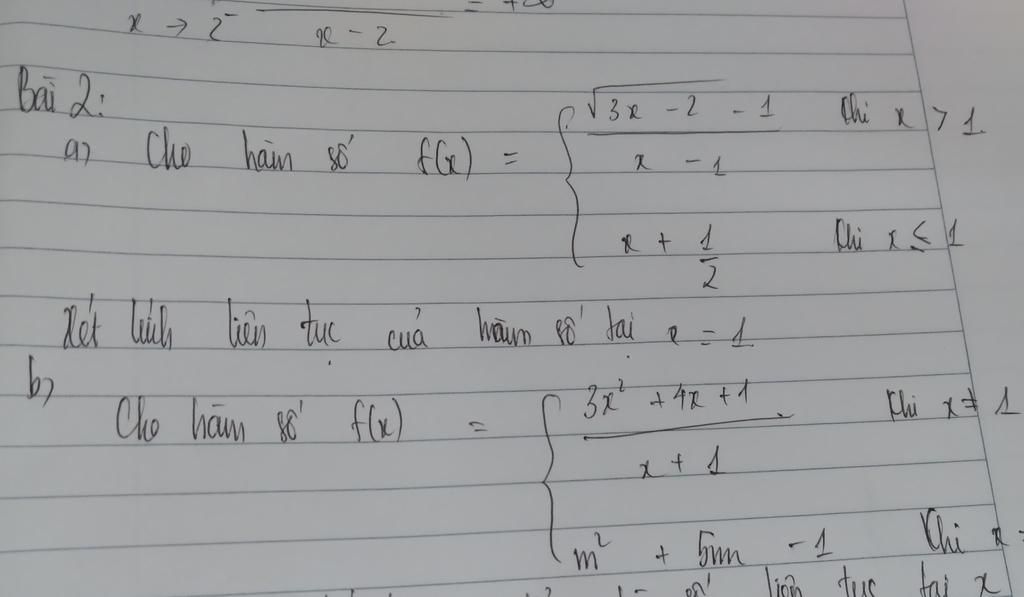 x → 2⁻ x - 2 = +∞
Bài 2:
a) Cho hàm số f(x) = { (√(3x - 2) - 1)/(x - 1) khi x > 1
x + 1/2 khi x ≤ 1
Xét tính liên tục của hàm số tại x = 1
b)
Cho hàm số f(x) = { (3x² + 4x + 1)/(x + 1) khi x ≠ 1
m² + 5m - 1 khi x =
số liên tục tại x